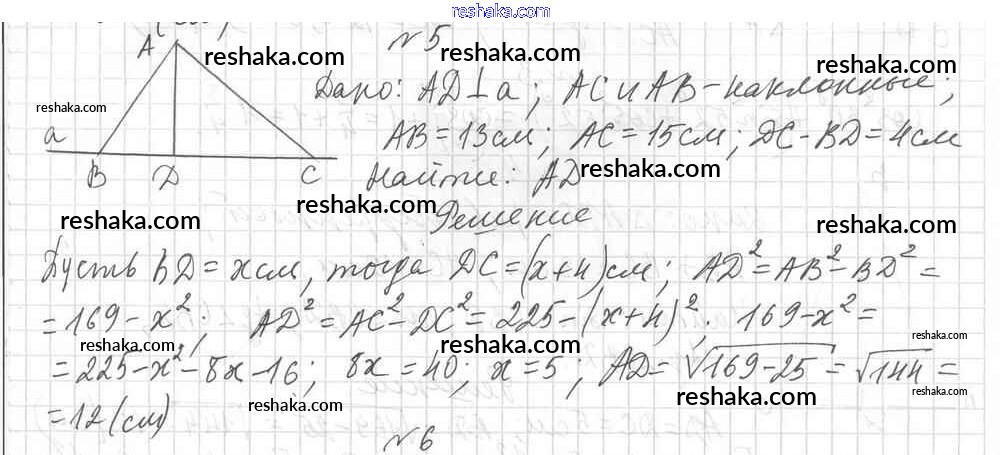 reshaka.com
№5
A
reshaka.com
reshaka.com
reshaka.com
Дано: AD⊥a; AC и AB - наклонные;
reshaka.com
a
AB = 13 см; AC = 15 см; DC - BD = 4 см
B D C
Найти: AD
reshaka.com
reshaka.com
Решение
reshaka.com
reshaka.com
Пусть BD = x см, тогда DC = (x+4) см; AD² = AB² - BD² =
= 169 - x²; AD² = AC² - DC² = 225 - (x+4)². 169 - x² =
reshaka.com
reshaka.com
reshaka.com
= 225 - x² - 8x - 16; 8x = 40; x = 5; AD = √169-25 = √144 =
reshaka.com
reshaka.com
reshaka.com
= 12 (см)
№6